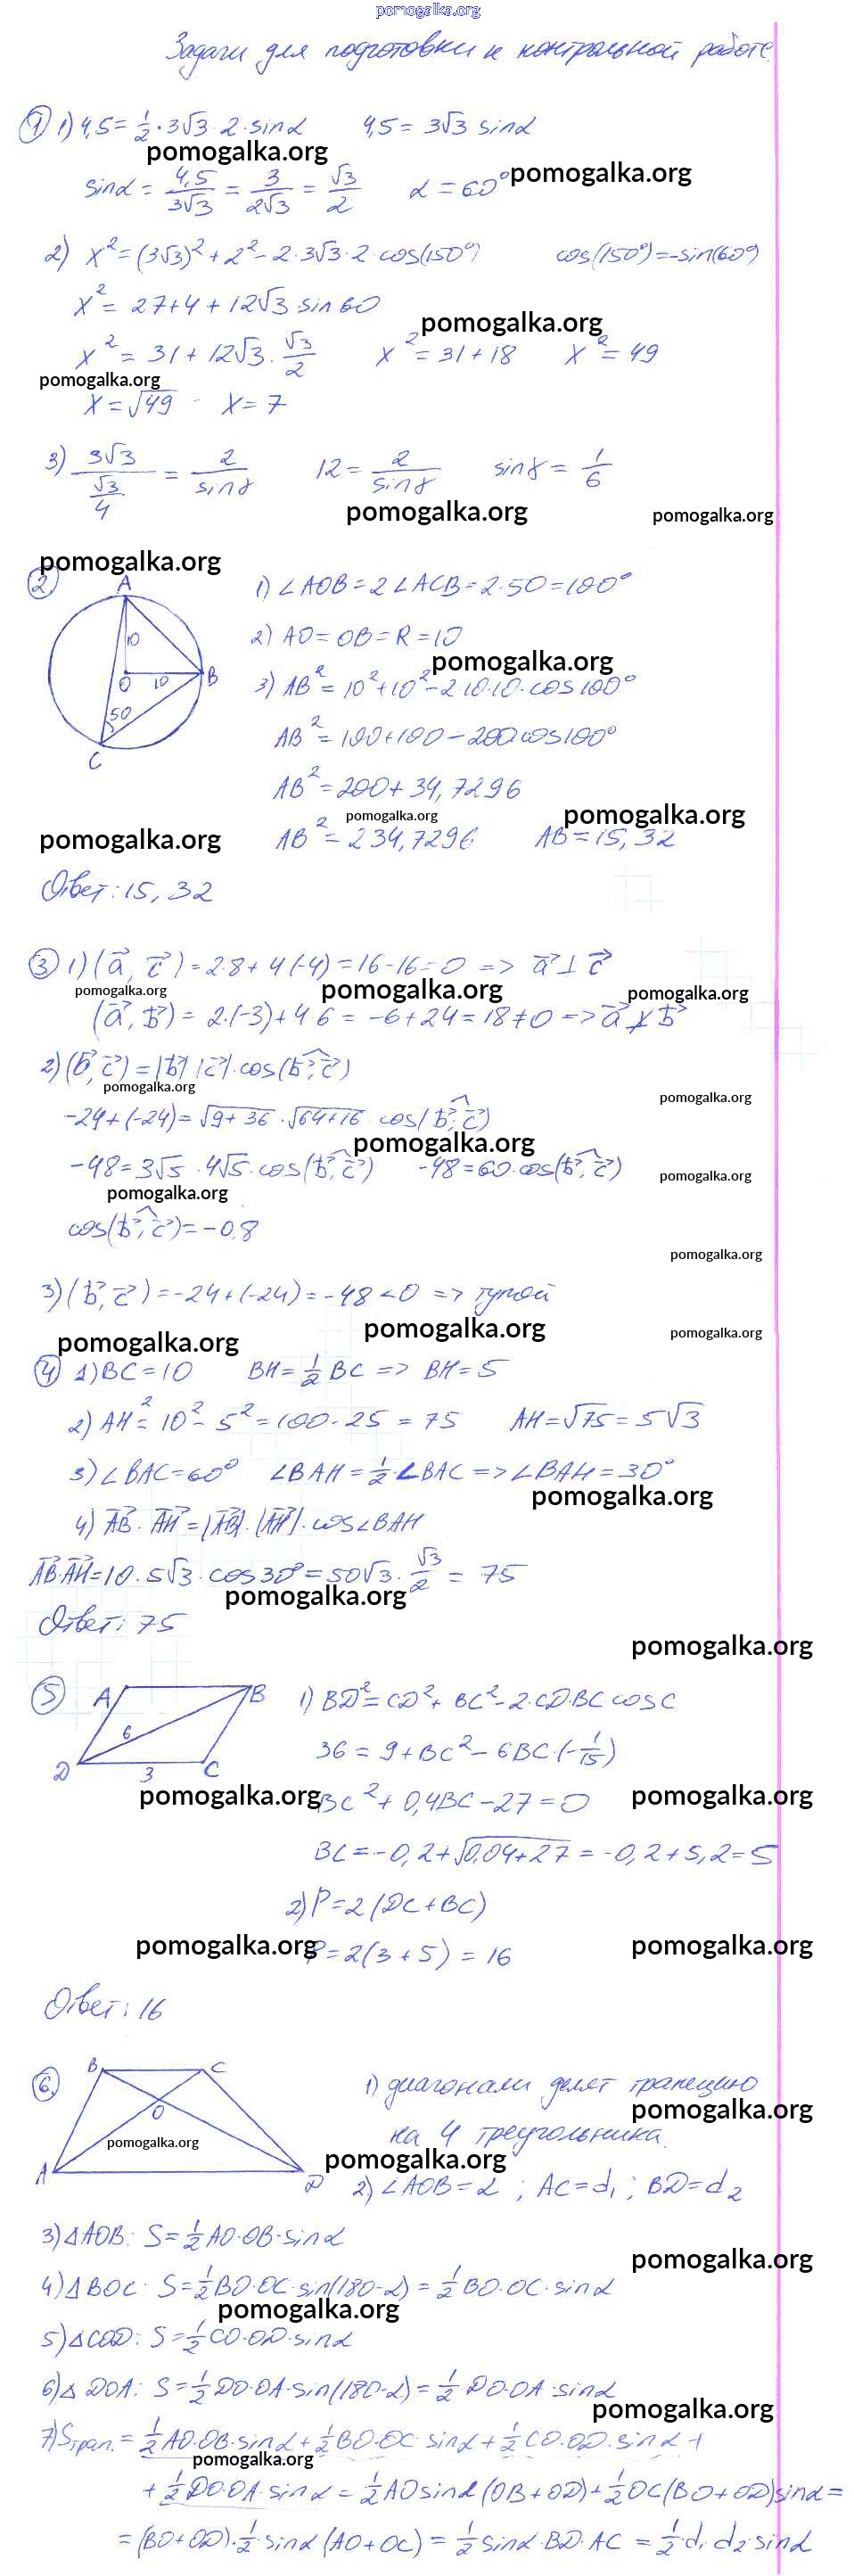 pomogalka.org
Задачи для подготовки к контрольной работе.
① 1) 4,5 = 1/2 · 3√3 · 2 · sinα    4,5 = 3√3 sinα
pomogalka.org
sinα = 4,5/3√3 = 3/2√3 = √3/2    α = 60° pomogalka.org
2) x² = (3√3)² + 2² - 2 · 3√3 · 2 · cos(150°)    cos(150°) = -sin(60°)
x² = 27 + 4 + 12√3 · sin 60
pomogalka.org
x² = 31 + 12√3 · √3/2    x² = 31 + 18    x² = 49
pomogalka.org
x = √49 - x = 7
3) 3√3/(√3/4) = 2/sinγ    12 = 2/sinγ    sinγ = 1/6
pomogalka.org pomogalka.org
pomogalka.org
② A 10 O 10 B 50 C
1) ∠AOB = 2∠ACB = 2 · 50 = 100°
2) AO = OB = R = 10
pomogalka.org
3) AB² = 10² + 10² - 2 · 10 · 10 · cos 100°
AB² = 100 + 100 - 200 cos 100°
AB² = 200 + 34,7296
pomogalka.org pomogalka.org
pomogalka.org AB² = 234,7296    AB = 15,32
Ответ: 15,32
③ 1) (a⃗, c⃗) = 2·8 + 4(-4) = 16 - 16 = 0 => a⃗ ⊥ c⃗
pomogalka.org pomogalka.org pomogalka.org
(a⃗, b⃗) = 2·(-3) + 4·6 = -6 + 24 = 18 ≠ 0 => a⃗ ⊥̸ b⃗
2) (b⃗, c⃗) = |b⃗| |c⃗| · cos(b⃗, c⃗)
pomogalka.org pomogalka.org
-24 + (-24) = √9+36 · √64+16 · cos(b⃗; c⃗)
pomogalka.org
-48 = 3√5 · 4√5 · cos(b⃗, c⃗)    -48 = 60 · cos(b⃗, c⃗) pomogalka.org
pomogalka.org
cos(b⃗, c⃗) = -0,8
pomogalka.org
3) (b⃗, c⃗) = -24 + (-24) = -48 < 0 => тупой
pomogalka.org pomogalka.org pomogalka.org
④ 1) BC = 10    BH = 1/2 BC => BH = 5
2) AH² = 10² - 5² = 100 - 25 = 75    AH = √75 = 5√3
3) ∠BAC = 60°    ∠BAH = 1/2 ∠BAC => ∠BAH = 30°
pomogalka.org
4) AB⃗ · AH⃗ = |AB⃗| · |AH⃗| · cos∠BAH
AB⃗·AH⃗ = 10 · 5√3 · cos 30° = 50√3 · √3/2 = 75
pomogalka.org
Ответ: 75
pomogalka.org
⑤ A B 6 D 3 C
1) BD² = CD² + BC² - 2·CD·BC cos C
36 = 9 + BC² - 6BC·(-1/15)
pomogalka.org BC² + 0,4BC - 27 = 0 pomogalka.org
BC = -0,2 + √0,04+27 = -0,2 + 5,2 = 5
2) P = 2(DC + BC)
pomogalka.org P = 2(3 + 5) = 16 pomogalka.org
Ответ: 16
⑥ B C O A D
1) диагонали делят трапецию
pomogalka.org
на 4 треугольника.
pomogalka.org pomogalka.org
2) ∠AOB = α ; AC = d₁ ; BD = d₂
3) △AOB: S = 1/2 AO·OB·sinα
pomogalka.org
4) △BOC: S = 1/2 BO·OC·sin(180-α) = 1/2 BO·OC·sinα
pomogalka.org
5) △COD: S = 1/2 CO·OD·sinα
6) △DOA: S = 1/2 DO·OA·sin(180-α) = 1/2 DO·OA·sinα
pomogalka.org
7) Sтрап. = 1/2 AO·OB·sinα + 1/2 BO·OC sinα + 1/2 CO·OD·sinα +
pomogalka.org
+ 1/2 DO·OA·sinα = 1/2 AO sinα (OB + OD) + 1/2 OC(BO + OD) sinα =
= (BO + OD)·1/2 sinα (AO + OC) = 1/2 sinα·BD·AC = 1/2 d₁ d₂ sinα